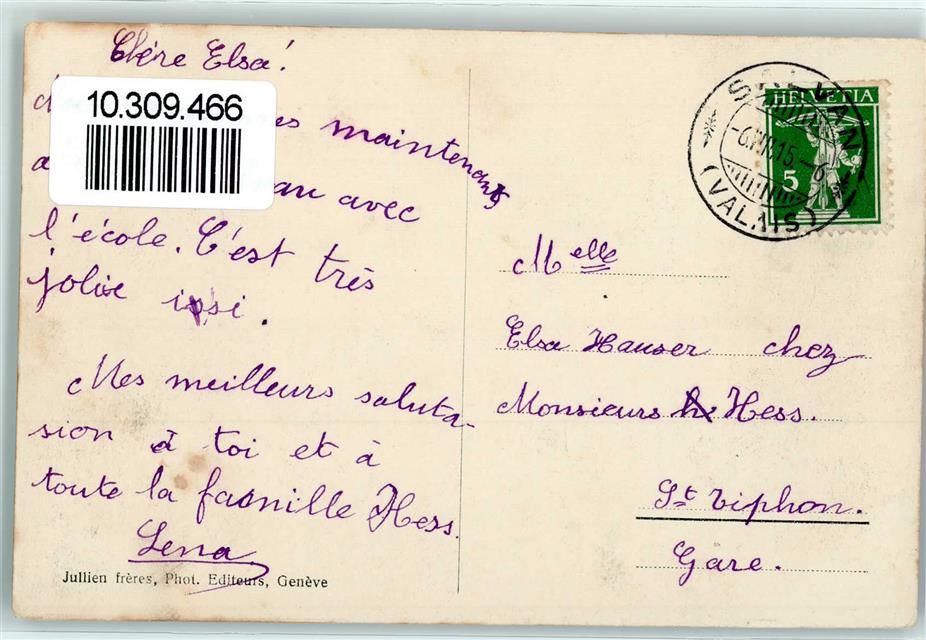 Chére Elsa!
10.309.466
maintenant
au avec
l'école. C'est très
jolie issi.
Mes meilleurs saluta-
sion à toi et à
toute la famille Hess.
Lena
Jullien frères, Phot. Editeurs, Genève
SALVAN
(VALAIS)
HELVETIA
5
Melle
Elsa Hauser chez
Monsieurs Hess.
St. Triphon.
Gare.